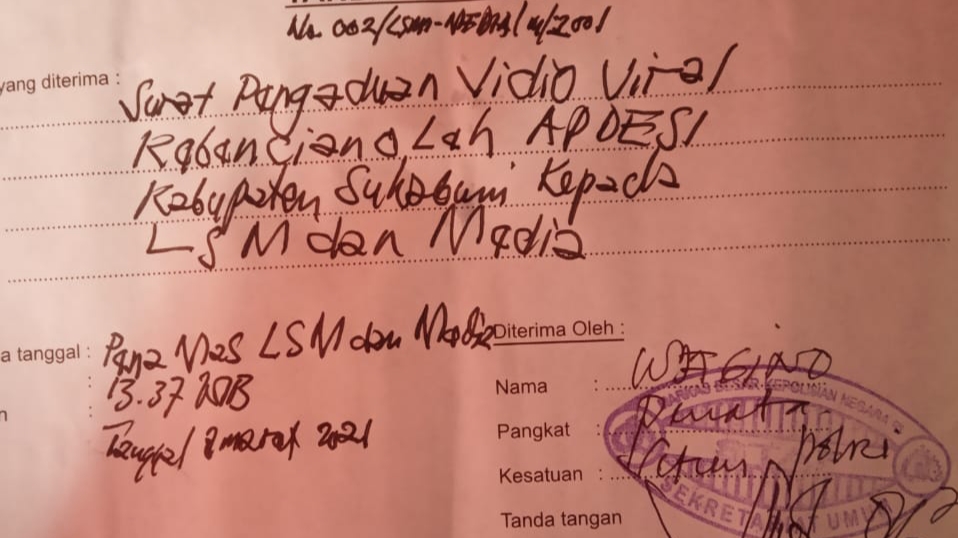 No. 002/LSM-
yang diterima : Surat Pengaduan Vidio Viral
APDESI
Kabupaten Sukabumi Kepada
LSM dan Media
a tanggal : LSM dan Media
13.37 WIB
Tanggal 8 maret 2021
n :
Diterima Oleh :
Nama : WAGINO
Pangkat :
Kesatuan : Polri
Tanda tangan
MARKAS BESAR KEPOLISIAN NEGARA
SEKRETARIAT UMUM